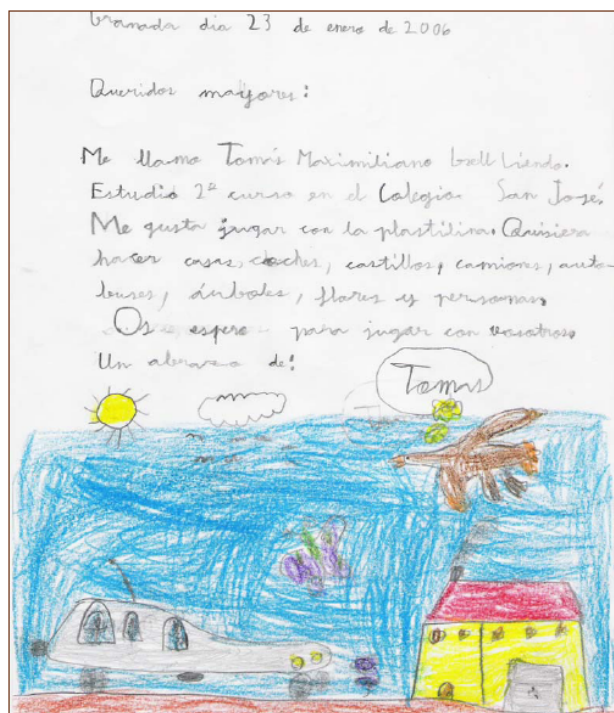 Granada dia 23 de enero de 2006
Queridos mayores:
Me llamo Tomás Maximiliano Liendo.
Estudio 2º curso en el Colegio San José.
Me gusta jugar con la plastilina. Quisiera
hacer casas, coches, castillos, camiones, auto-
buses, árboles, flores y personas.
Os espero para jugar con vosotros.
Un abrazo de:
Tomás